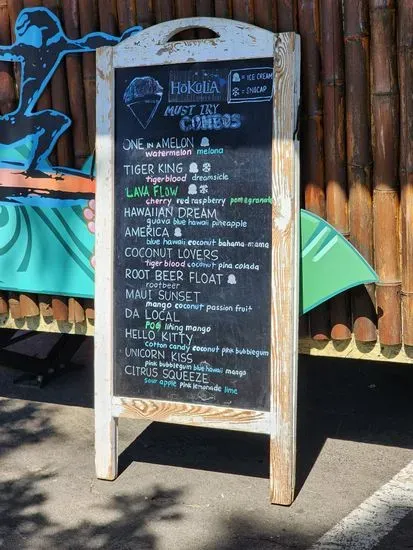 HōKULiA
= ICE CREAM
= SNOCAP
MUST TRY
COMBOS
ONE IN A MELON
watermelon melona
TIGER KING
tigerblood dreamsicle
LAVA FLOW
cherry red raspberry pomegranate
HAWAIIAN DREAM
guava blue hawaii pineapple
AMERICA
blue hawaii coconut bahama mama
COCONUT LOVERS
tiger blood coconut pina colada
ROOT BEER FLOAT
rootbeer
MAUI SUNSET
mango coconut passion fruit
DA LOCAL
POG lihing mango
HELLO KITTY
cotton candy coconut pink bubblegum
UNICORN KISS
pink bubblegum blue hawaii mango
CITRUS SQUEEZE
sour apple pink lemonade lime